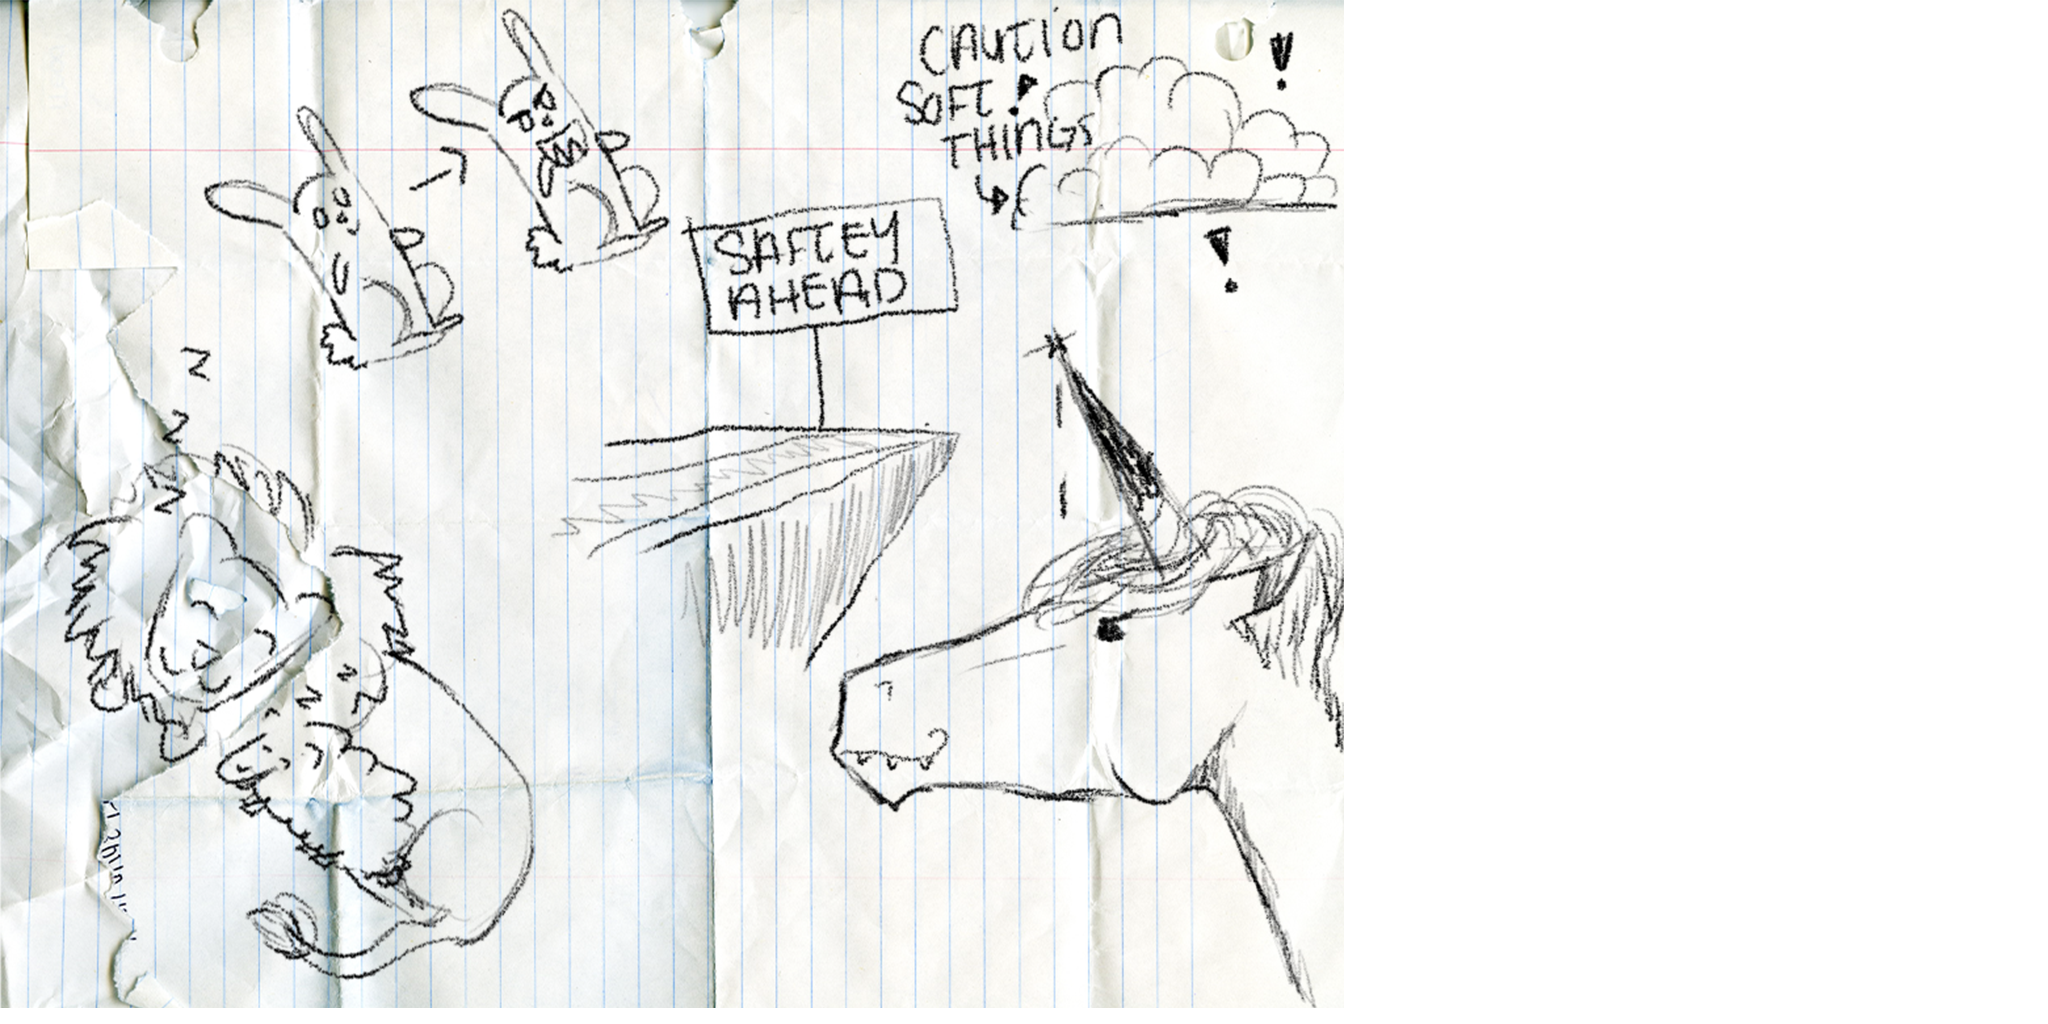 CAUTION
SOFT!
THINGS
!
!
SAFTEY
AHEAD
Z
Z
Z
Z
Z